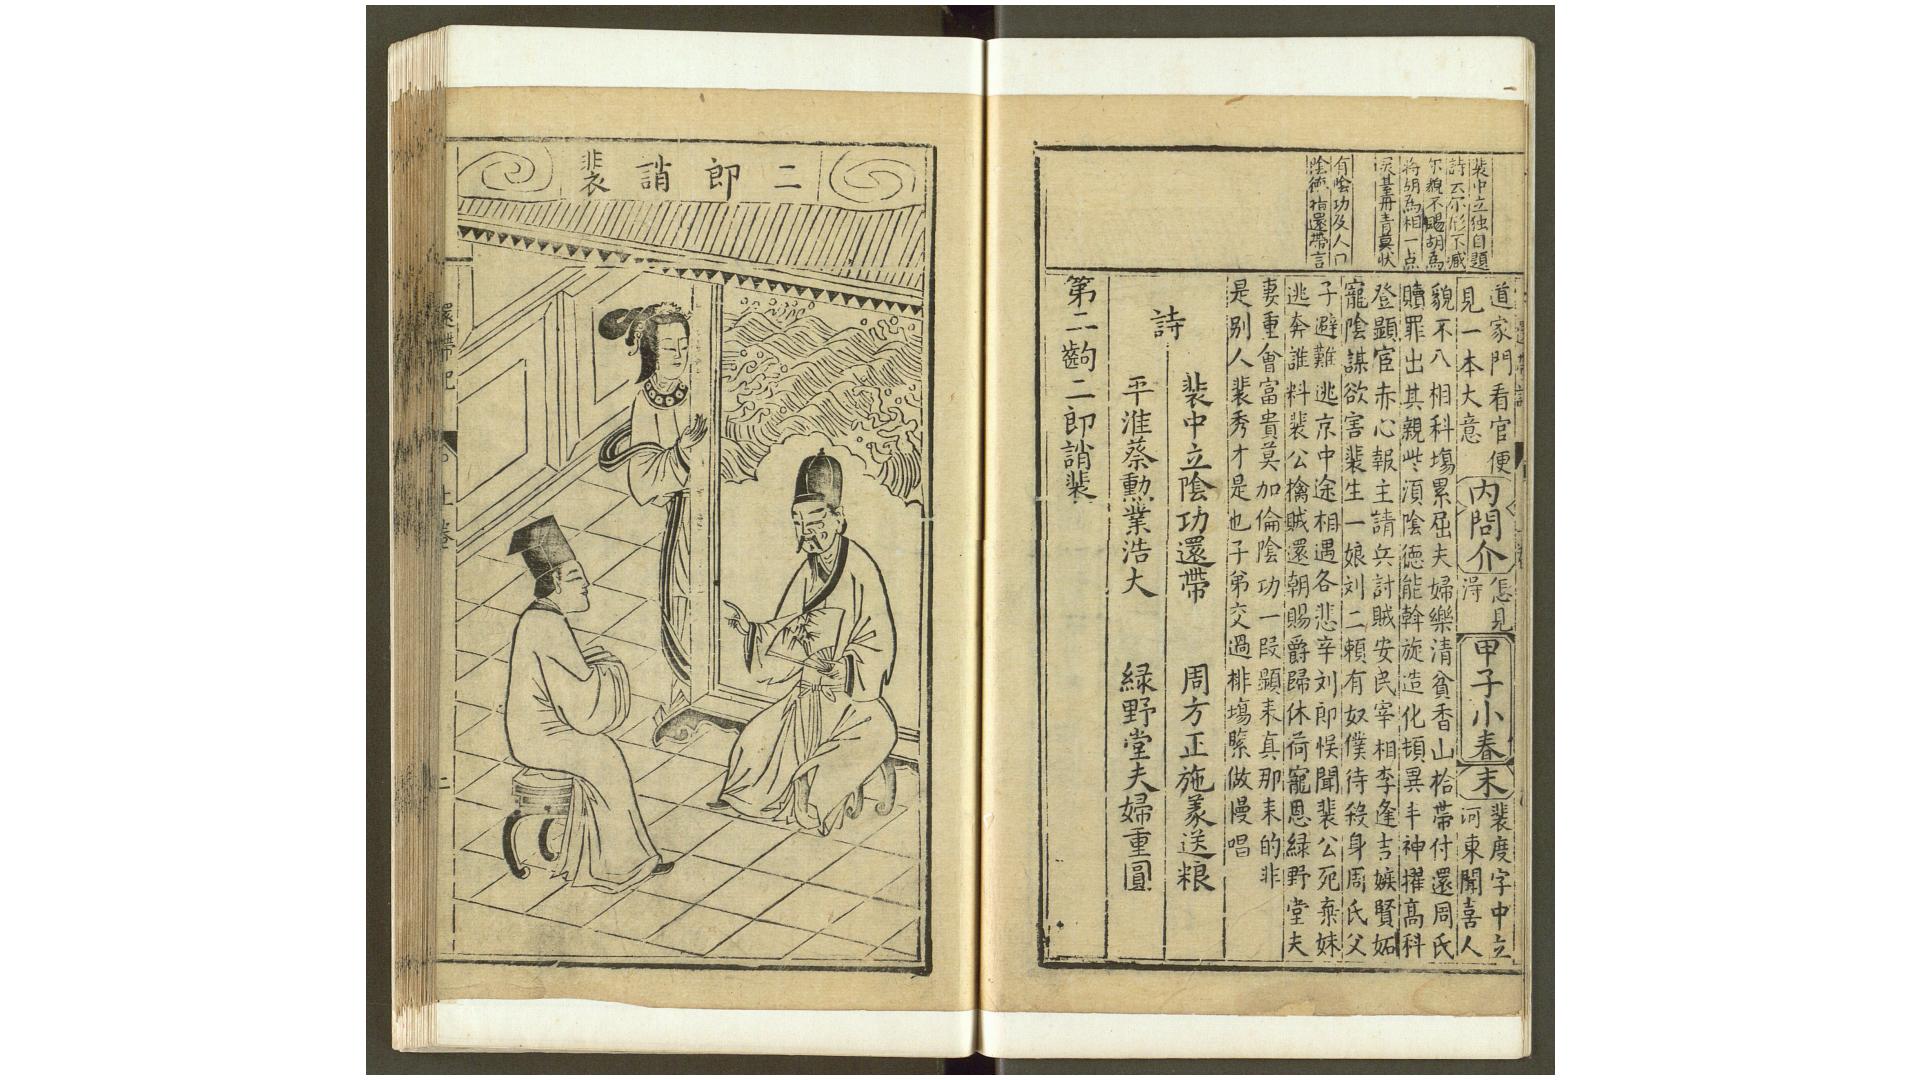 裴中立独自題
詩云尔形不减
尔貌不颺胡爲
将胡爲相一点
灵臺丹青莫状
有陰功及人口
陰德指還帶言
道家門看官便
見一本大意
内問介
怎見
淂
甲子小春
末
裴度字中立
河東聞喜人
貌不八相科塲累屈夫婦樂清貧香山拾帶付還周氏
贖罪出其親此湏陰德能斡旋造化頓異丰神擢高科
登顕宦赤心報主請兵討賊安民宰相李逢吉嫉賢妬
寵陰謀欲害裴生一娘刘二頼有奴僕待殺身周氏父
子避難逃京中途相遇各悲辛刘郎悮聞裴公死棄妹
逃奔誰料裴公擒賊還朝賜爵歸休荷寵恩緑野堂夫
妻重會富貴莫加倫陰功一叚顕耒真那耒的非
是别人裴秀才是也子弟交過排塲縣做慢唱
詩
裴中立陰功還帶
周方正施義送粮
平淮蔡勳業浩大
緑野堂夫婦重圓
第二齣二郎誚裴
二郎誚裴
還帶記
上卷
二